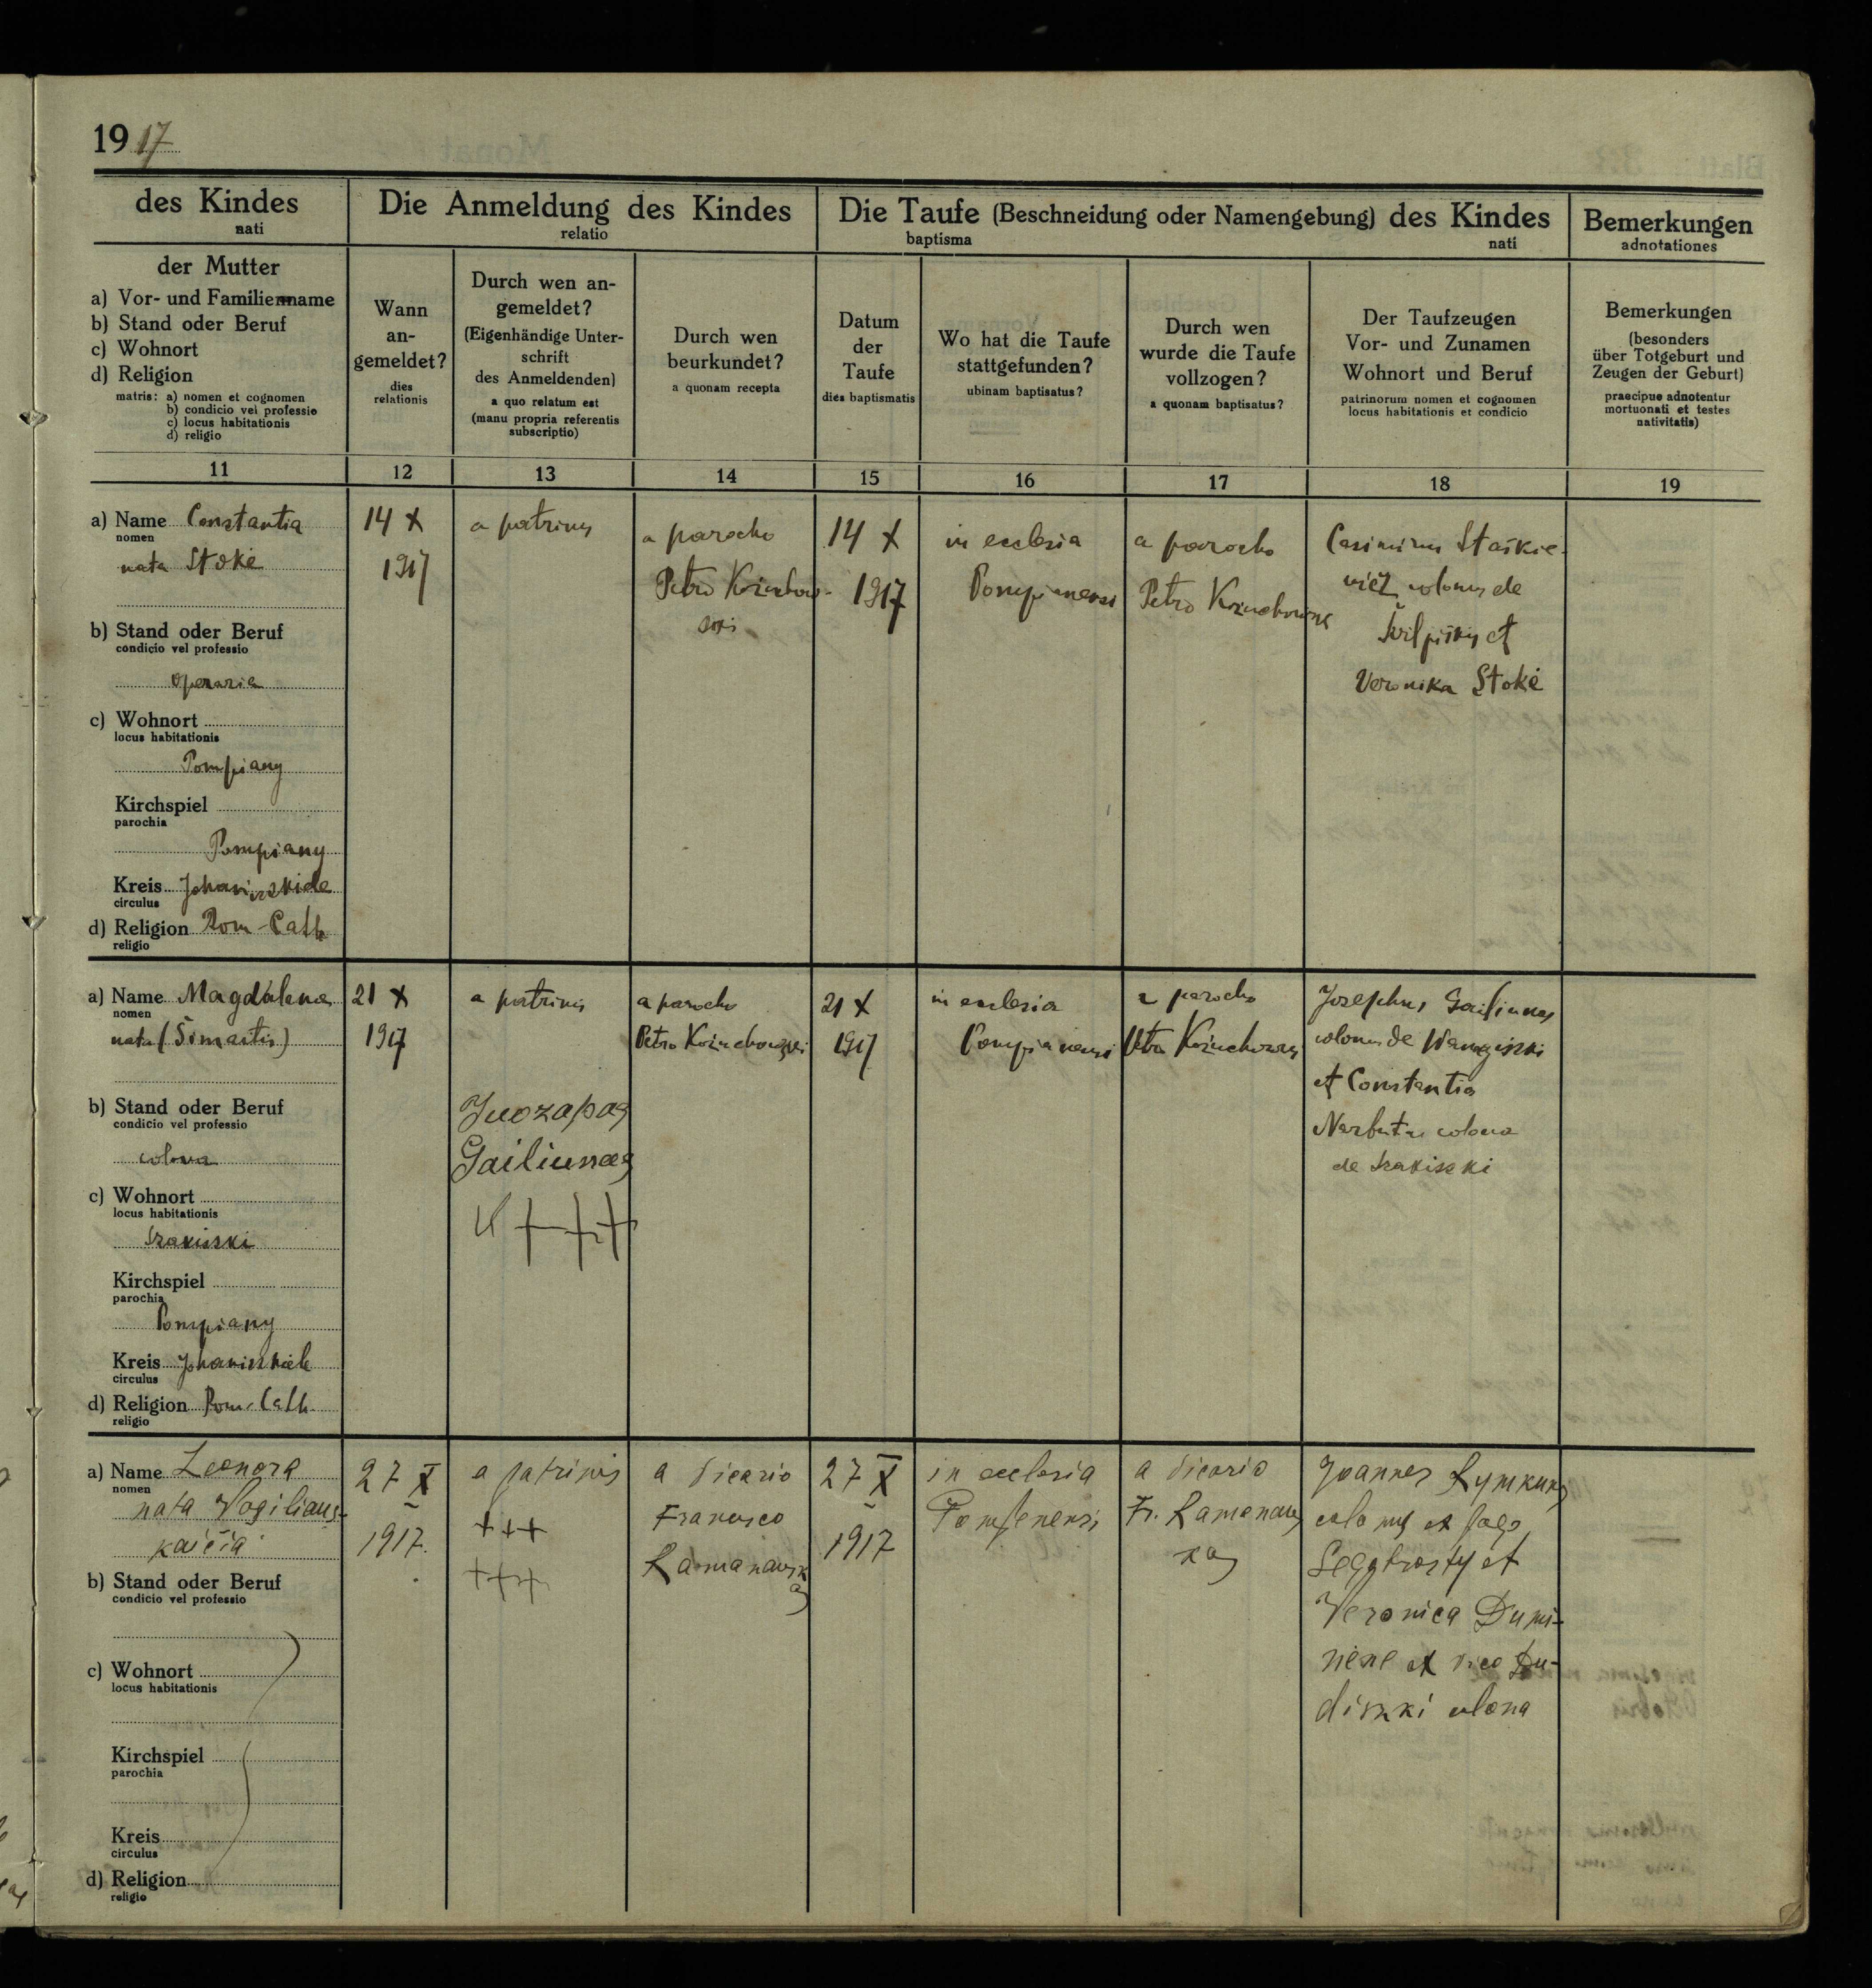 1917
des Kindes
nati
Die Anmeldung des Kindes
relatio
Die Taufe (Beschneidung oder Namengebung) des Kindes
baptisma nati
Bemerkungen
adnotationes
der Mutter
a) Vor- und Familienname
b) Stand oder Beruf
c) Wohnort
d) Religion
matris: a) nomen et cognomen
b) condicio vel professio
c) locus habitationis
d) religio
Wann
an-
gemeldet?
dies
relationis
Durch wen an-
gemeldet?
(Eigenhändige Unter-
schrift
des Anmeldenden)
a quo relatum est
(manu propria referentis
subscriptio)
Durch wen
beurkundet?
a quonam recepta
Datum
der
Taufe
dies baptismatis
Wo hat die Taufe
stattgefunden?
ubinam baptisatus?
Durch wen
wurde die Taufe
vollzogen?
a quonam baptisatus?
Der Taufzeugen
Vor- und Zunamen
Wohnort und Beruf
patrinorum nomen et cognomen
locus habitationis et condicio
Bemerkungen
(besonders
über Totgeburt und
Zeugen der Geburt)
praecipue adnotentur
mortuonati et testes
nativitatis)
11 12 13 14 15 16 17 18 19
a) Name Constantia
nomen
nata Stokė
b) Stand oder Beruf
condicio vel professio
operaria
c) Wohnort
locus habitationis
Pompiany
Kirchspiel
parochia
Pompiany
Kreis Johaniszkiele
circulus
d) Religion Rom-Cath
religio
14 X
1917
a patrinis
a parocho
Petro Kozuchow-
ski
14 X
1917
in ecclesia
Pompianensi
a parocho
Petro Kozuchowski
Casimirus Staškie-
vičz colonus de
et
Veronika Stokė
a) Name Magdalena
nomen
nata (Simaitis)
b) Stand oder Beruf
condicio vel professio
colona
c) Wohnort
locus habitationis
Szakiszki
Kirchspiel
parochia
Pompiany
Kreis Johaniszkiele
circulus
d) Religion Rom-Cath
religio
21 X
1917
a patrinis
Juozapas
Gailiunas
+++
a parocho
Petro Kozuchowski
21 X
1917
in ecclesia
Pompianensi
a parocho
Petro Kozuchowski
Josephus Gailiunas
colonus de
et Constantia
colona
de Szakiszki
a) Name Leonora
nomen
nata Vogiliaus-
kaičia
b) Stand oder Beruf
condicio vel professio
c) Wohnort
locus habitationis
Kirchspiel
parochia
Kreis
circulus
d) Religion
religio
27 X
1917.
a patrinis
+++
+++
a vicario
Francisco
Ramanausk
as
27 X
1917
in ecclesia
Pompenensi
a vicario
Fr. Ramanaus
kas
Joannes Rymkuns
colonus ex pago
et
Veronica Dumi-
niene ex vico Du-
diszki colona